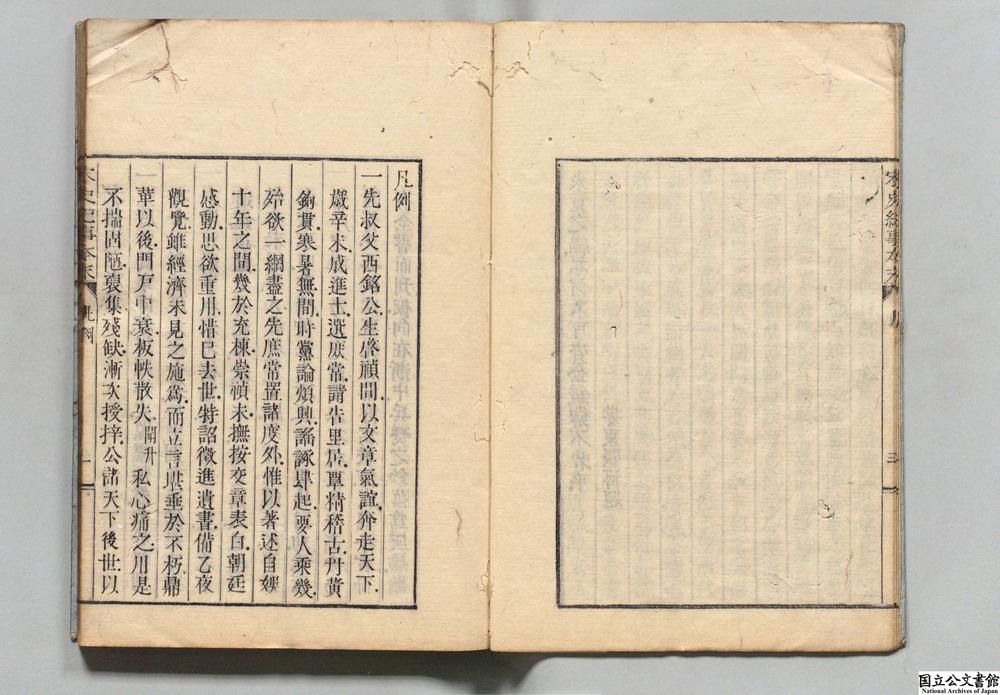 宋史紀事本末
序
三
凡例
一先叔父西銘公生啓禎間以文章氣誼奔走天下
歲辛未成進士選庶常請告里居覃精稽古丹黃
鉤貫寒暑無間時黨論煩興謠諑肆起要人乘幾
殆欲一網盡之先庶常置諸度外惟以著述自娛
十年之間幾於充棟崇禎末撫按交章表白朝廷
感動思欲重用惜已去世特詔徵進遺書備乙夜
觀覽雖經濟未見之施爲而立言堪垂於不朽鼎
革以後門戶中衰板帙散失開升私心痛之用是
不揣固陋裒集殘缺漸次授梓公諸天下後世以
宋史紀事本末
凡例
一
国立公文書館
National Archives of Japan